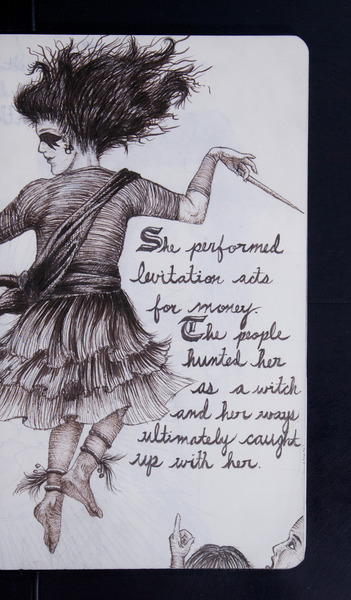 She performed
levitation acts
for money.
The people
hunted her
as a witch
and her ways
ultimately caught
up with her.